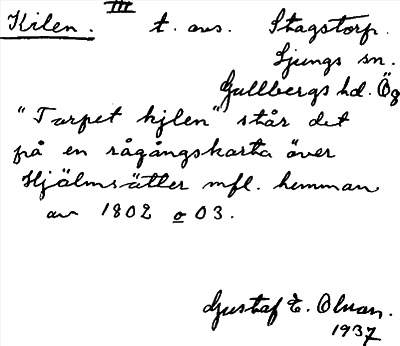 III
Kilen. t. avs. Stagstorp.
Ljungs sn.
Gullbergs hd. Ög
"Torpet kjlen" står det
på en rågångskarta över
Hjälmsätter mfl. hemman
av 1802 o 03.
Gustaf E. Olson.
1937